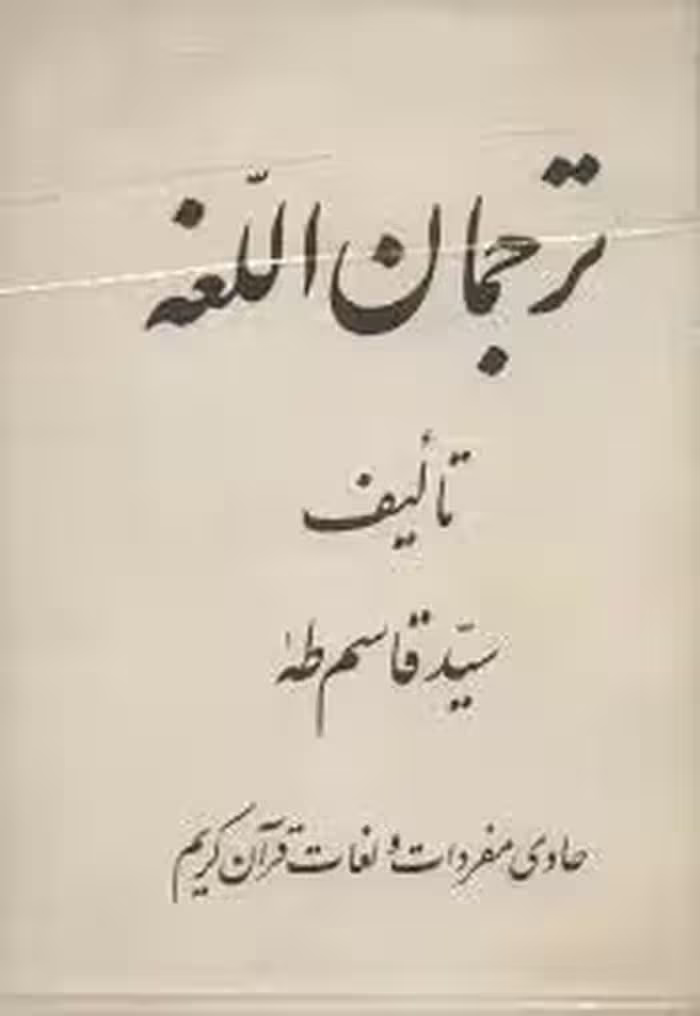 ترجمان اللّغه
تألیف
سیّد قاسم طهٰ
حاوی مفردات و لغات قرآن کریم